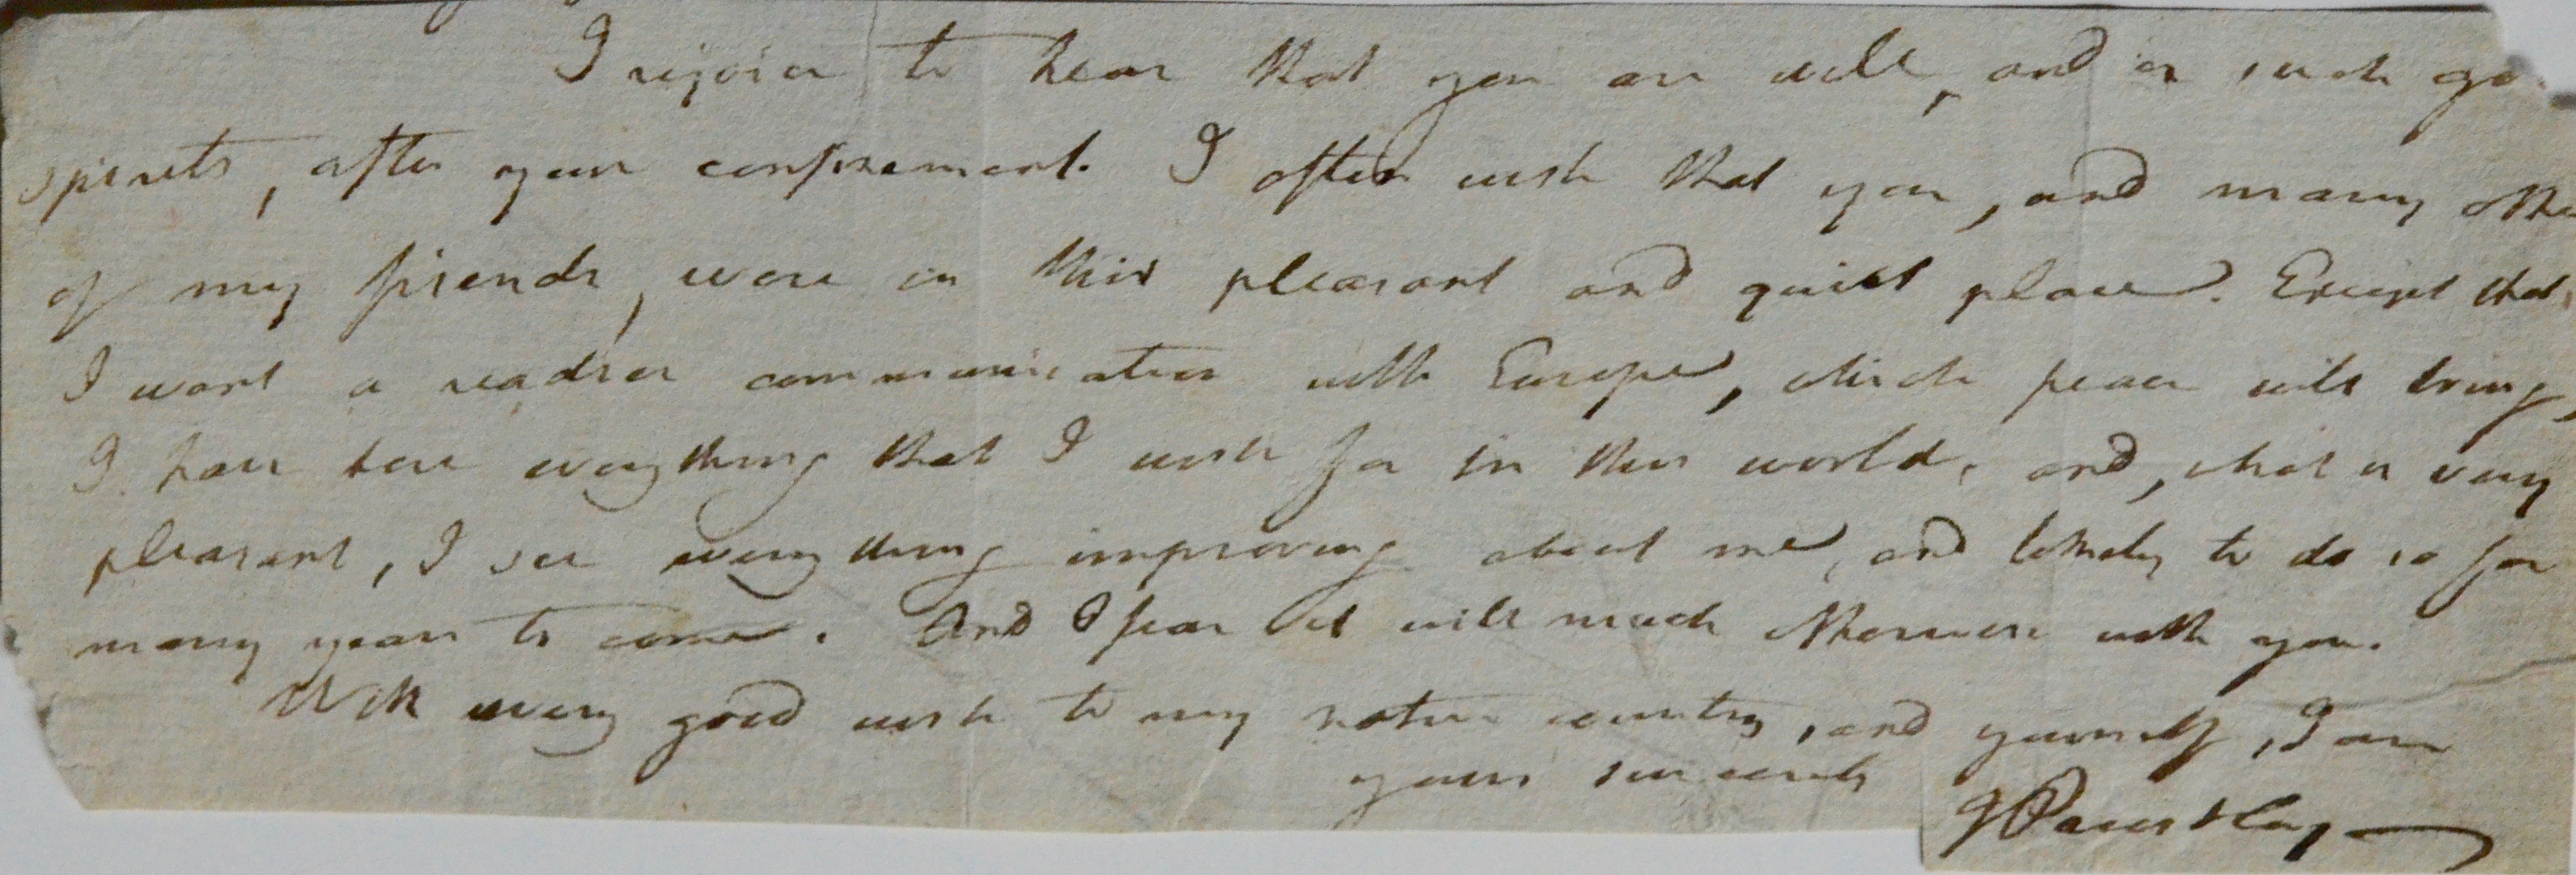 I rejoice to hear that you are well, and in such go
spirits, after your confinement. I often wish that you, and many othe
of my friends, were in this pleasant and quiet place. Except that
I want a readier communication with Europe, which peace will bring,
I have here everything that I wish for in this world, and, what is very
pleasant, I see every thing improving about me, and likely to do so for
many years to come. And I fear it will much otherwise with you.
With every good wish to my native country, and yourself, I am
yours sincerely
J Priestley